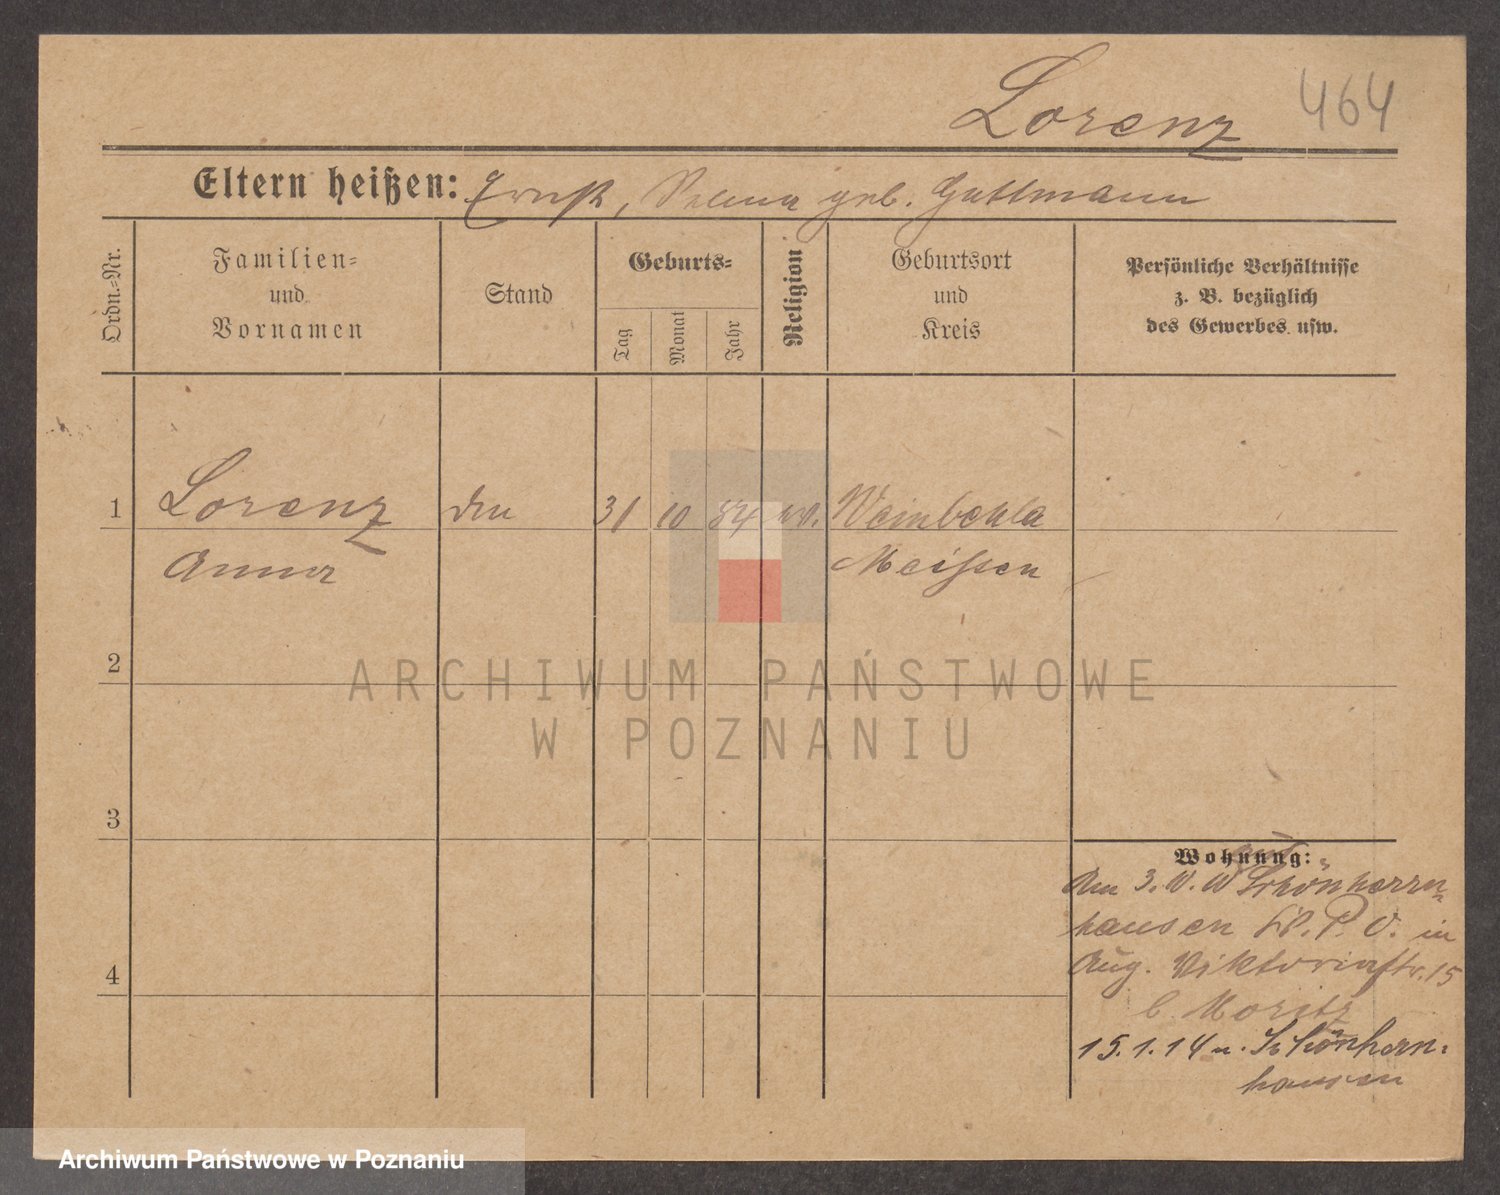 Lorenz 464
Eltern heißen: Ernst, Selma geb. Guttmann
Ordn.=Nr.
Familien=
und
Vornamen
Stand
Geburts=
Tag
Monat
Jahr
Religion
Geburtsort
und
Kreis
Persönliche Verhältnisse
z. B. bezüglich
des Gewerbes usw.
1 Lorenz 31 10 84 Weinböhla
Anna Meißen
2
3
4
Wohnung:
Am 3. Schönherrn=
hausen in
Aug. Viktoriastr. 15
b. Moritz
15.1.14 n. Schönhern=
hausen
ARCHIWUM PAŃSTWOWE
W POZNANIU
Archiwum Państwowe w Poznaniu